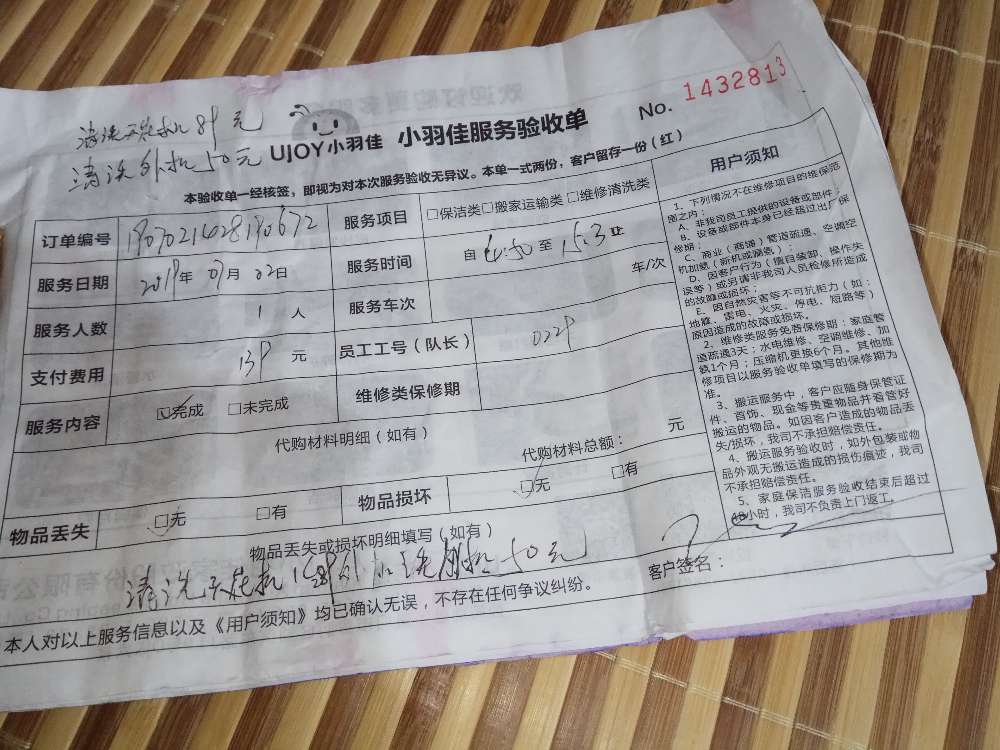 清洗天花机89元
清洗外机50元
UJOY小羽佳 小羽佳服务验收单
No. 1432813
本验收单一经核签，即视为对本次服务验收无异议。本单一式两份，客户留存一份（红）
订单编号 服务项目 □保洁类□搬家运输类 □维修清洗类
服务日期 2019年07月02日 服务时间 自 至 止
服务人数 1人 服务车次 车/次
支付费用 139元 员工工号（队长） 0229
服务内容 □完成 □未完成 维修类保修期
代购材料明细（如有）
代购材料总额： 元
物品丢失 □无 □有 物品损坏 □无 □有
物品丢失或损坏明细填写（如有）
清洗天花机 外机 50元
本人对以上服务信息以及《用户须知》均已确认无误，不存在任何争议纠纷。
客户签名：
用户须知
1、下列情况不在维修项目的维保范
围之内：
A、非我司员工提供的设备或部件；
B、设备或部件本身已经超过出厂保
修期；
C、商业（商铺）管道疏通、空调空
机加氨（新机或漏氨）；
D、因客户行为（擅自装卸、操作失
误等）或另请非我司人员检修所造成
的故障或损坏；
E、因自然灾害等不可抗拒力（如：
地震、雷电、火灾、停电、短路等）
原因造成的故障或损坏。
2、维修类服务免费保修期：家庭管
道疏通3天；水电维修、空调维修、加
氨1个月；压缩机更换6个月。其他维
修项目以服务验收单填写的保修期为
准。
3、搬运服务中，客户应随身保管证
件、首饰、现金等贵重物品并看管好
搬运的物品。如因客户造成的物品丢
失/损坏，我司不承担赔偿责任。
4、搬运服务验收时，如外包装或物
品外观无搬运造成的损伤痕迹，我司
不承担赔偿责任。
5、家庭保洁服务验收结束后超过
48小时，我司不负责上门返工。